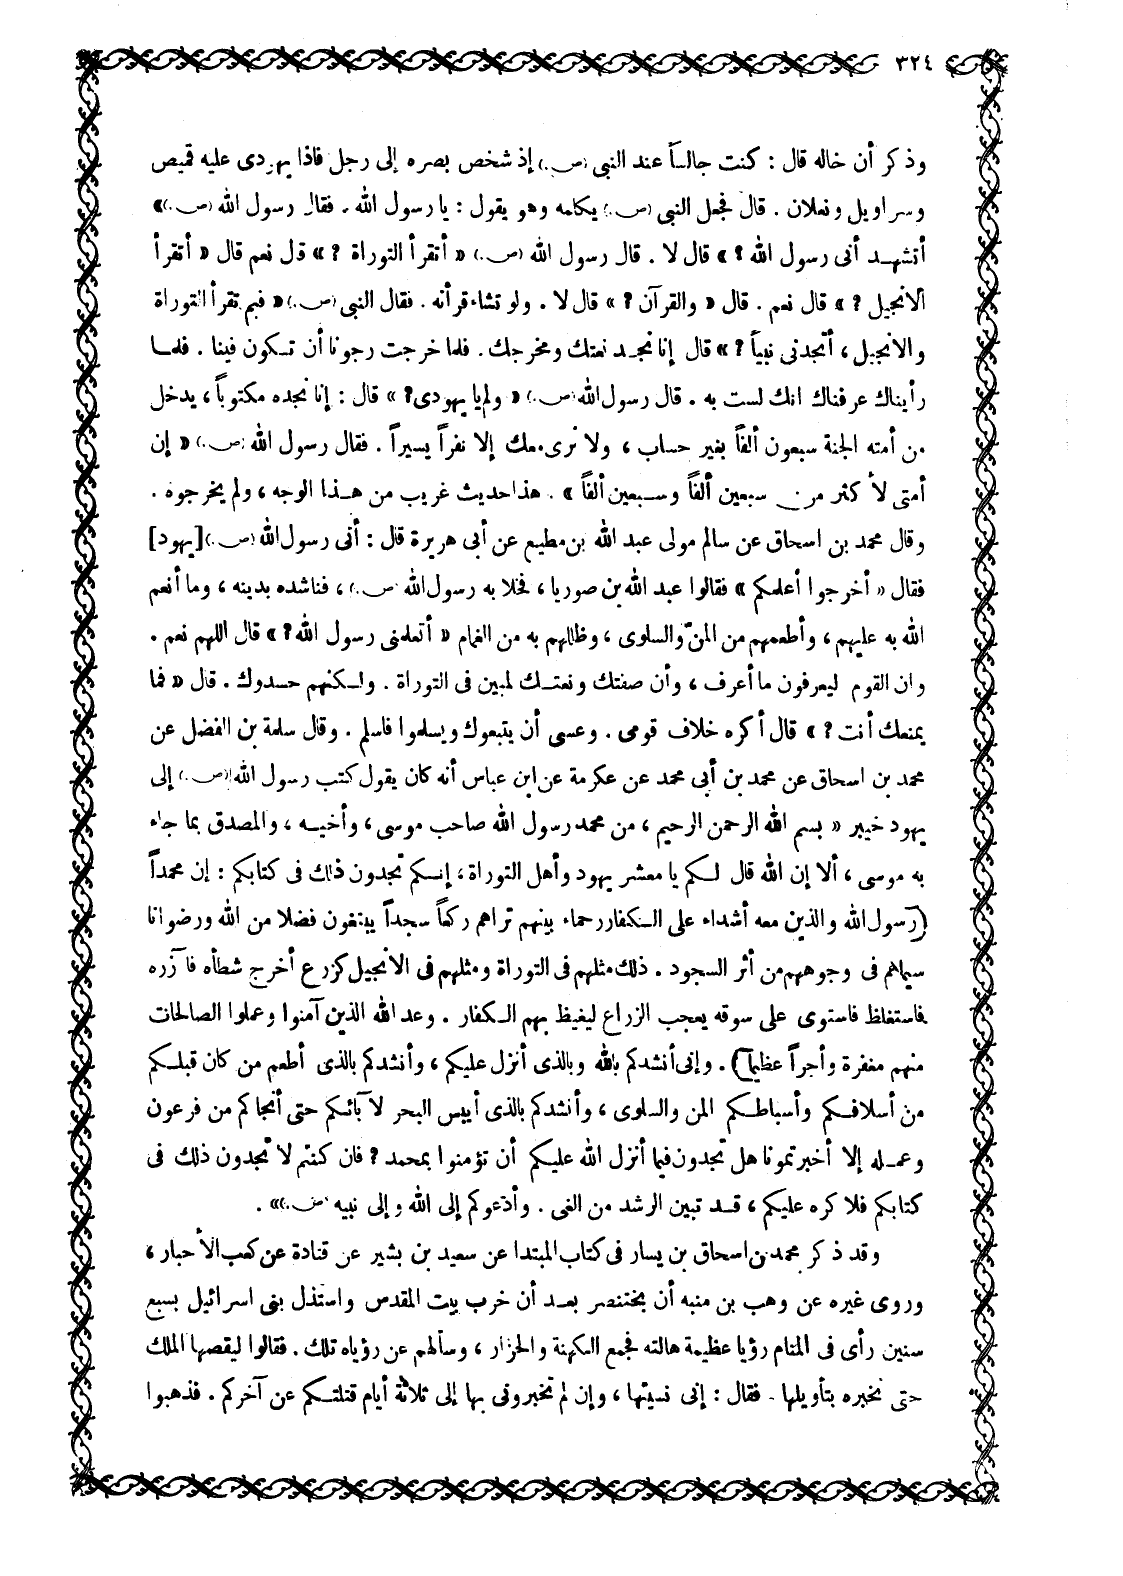 ٣٢٤
وذكر أن خاله قال : كنت جالساً عند النبي (ص.) إذ شخص بصره إلى رجل فاذا يهودى عليه قميص
وسراويل ونعلان . قال فجعل النبي (ص.) يكلمه وهو يقول : يا رسول الله . فقال رسول الله (ص.) »
أتشهد أنى رسول الله ؟ » قال لا . قال رسول الله (ص.) « أتقرأ التوراة ؟ » قل نعم قال « أتقرأ
الانجيل ؟ » قال نعم . قال « والقرآن ؟ » قال لا . ولو تشاء قرأته . فقال النبي (ص.) « فبم تقرأ التوراة
والانجيل ، أتجدنى نبياً ؟ » قال إنا نجد نعتك ومخرجك . فلما خرجت رجونا أن تكون فينا . فلما
رأيناك عرفناك انك لست به . قال رسول الله (ص.) « ولم يا يهودى ؟ » قال : إنا نجده مكتوباً ، يدخل
من أمته الجنة سبعون ألفاً بغير حساب ، ولا نرى معك إلا نفراً يسيراً . فقال رسول الله (ص.) « إن
أمتى لأكثر من سبعين ألفاً وسبعين ألفاً » . هذا حديث غريب من هذا الوجه ، ولم يخرجوه .
وقال محمد بن اسحاق عن سالم مولى عبد الله بن مطيع عن أبى هريرة قال : أتى رسول الله (ص.) [يهود]
فقال « أخرجوا أعلمكم » فقالوا عبد الله بن صوريا ، فخلا به رسول الله (ص.) ، فناشده بدينه ، وما أنعم
الله به عليهم ، وأطعمهم من المنّ والسلوى ، وظللهم به من الغمام « أتعلمنى رسول الله ؟ » قال اللهم نعم .
وان القوم ليعرفون ما أعرف ، وأن صفتك ونعتك لمبين فى التوراة . ولكنهم حسدوك . قال « فما
يمنعك أنت ؟ » قال أكره خلاف قومى . وعسى أن يتبعوك ويسلموا فاسلم . وقال سلمة بن الفضل عن
محمد بن اسحاق عن محمد بن أبى محمد عن عكرمة عن ابن عباس أنه كان يقول كتب رسول الله (ص.) إلى
يهود خيبر « بسم الله الرحمن الرحيم ، من محمد رسول الله صاحب موسى ، وأخيه ، والمصدق بما جاء
به موسى ، ألا إن الله قال لكم يا معشر يهود وأهل التوراة ، إنكم تجدون ذلك فى كتابكم : إن محمداً
(رسول الله والذين معه أشداء على الكفار رحماء بينهم تراهم ركعاً سجداً يبتغون فضلا من الله ورضوانا
سيماهم فى وجوههم من أثر السجود . ذلك مثلهم فى التوراة ومثلهم فى الانجيل كزرع أخرج شطأه فآزره
فاستغلظ فاستوى على سوقه يعجب الزراع ليغيظ بهم الكفار . وعد الله الذين آمنوا وعملوا الصالحات
منهم مغفرة وأجراً عظيما) . وإنى أنشدكم بالله وبالذى أنزل عليكم ، وأنشدكم بالذى أطعم من كان قبلكم
من أسلافكم وأسباطكم المن والسلوى ، وأنشدكم بالذى أيبس البحر لآبائكم حتى أنجاكم من فرعون
وعمله إلا أخبرتمونا هل تجدون فيما أنزل الله عليكم أن تؤمنوا بمحمد ؟ فان كنتم لا تجدون ذلك فى
كتابكم فلا كره عليكم ، قد تبين الرشد من الغى . وأدعوكم إلى الله وإلى نبيه (ص.) » .
وقد ذكر محمد بن اسحاق بن يسار فى كتاب المبتدا عن سعيد بن بشير عن قتادة عن كعب الأحبار ،
وروى غيره عن وهب بن منبه أن بختنصر بعد أن خرب بيت المقدس واستذل بنى اسرائيل بسبع
سنين رأى فى المنام رؤيا عظيمة هالته فجمع الكهنة والحزار ، وسألهم عن رؤياه تلك . فقالوا ليقصها الملك
حتى نخبره بتأويلها . فقال : إنى نسيتها ، وإن لم تخبرونى بها إلى ثلاثة أيام قتلتكم عن آخركم . فذهبوا